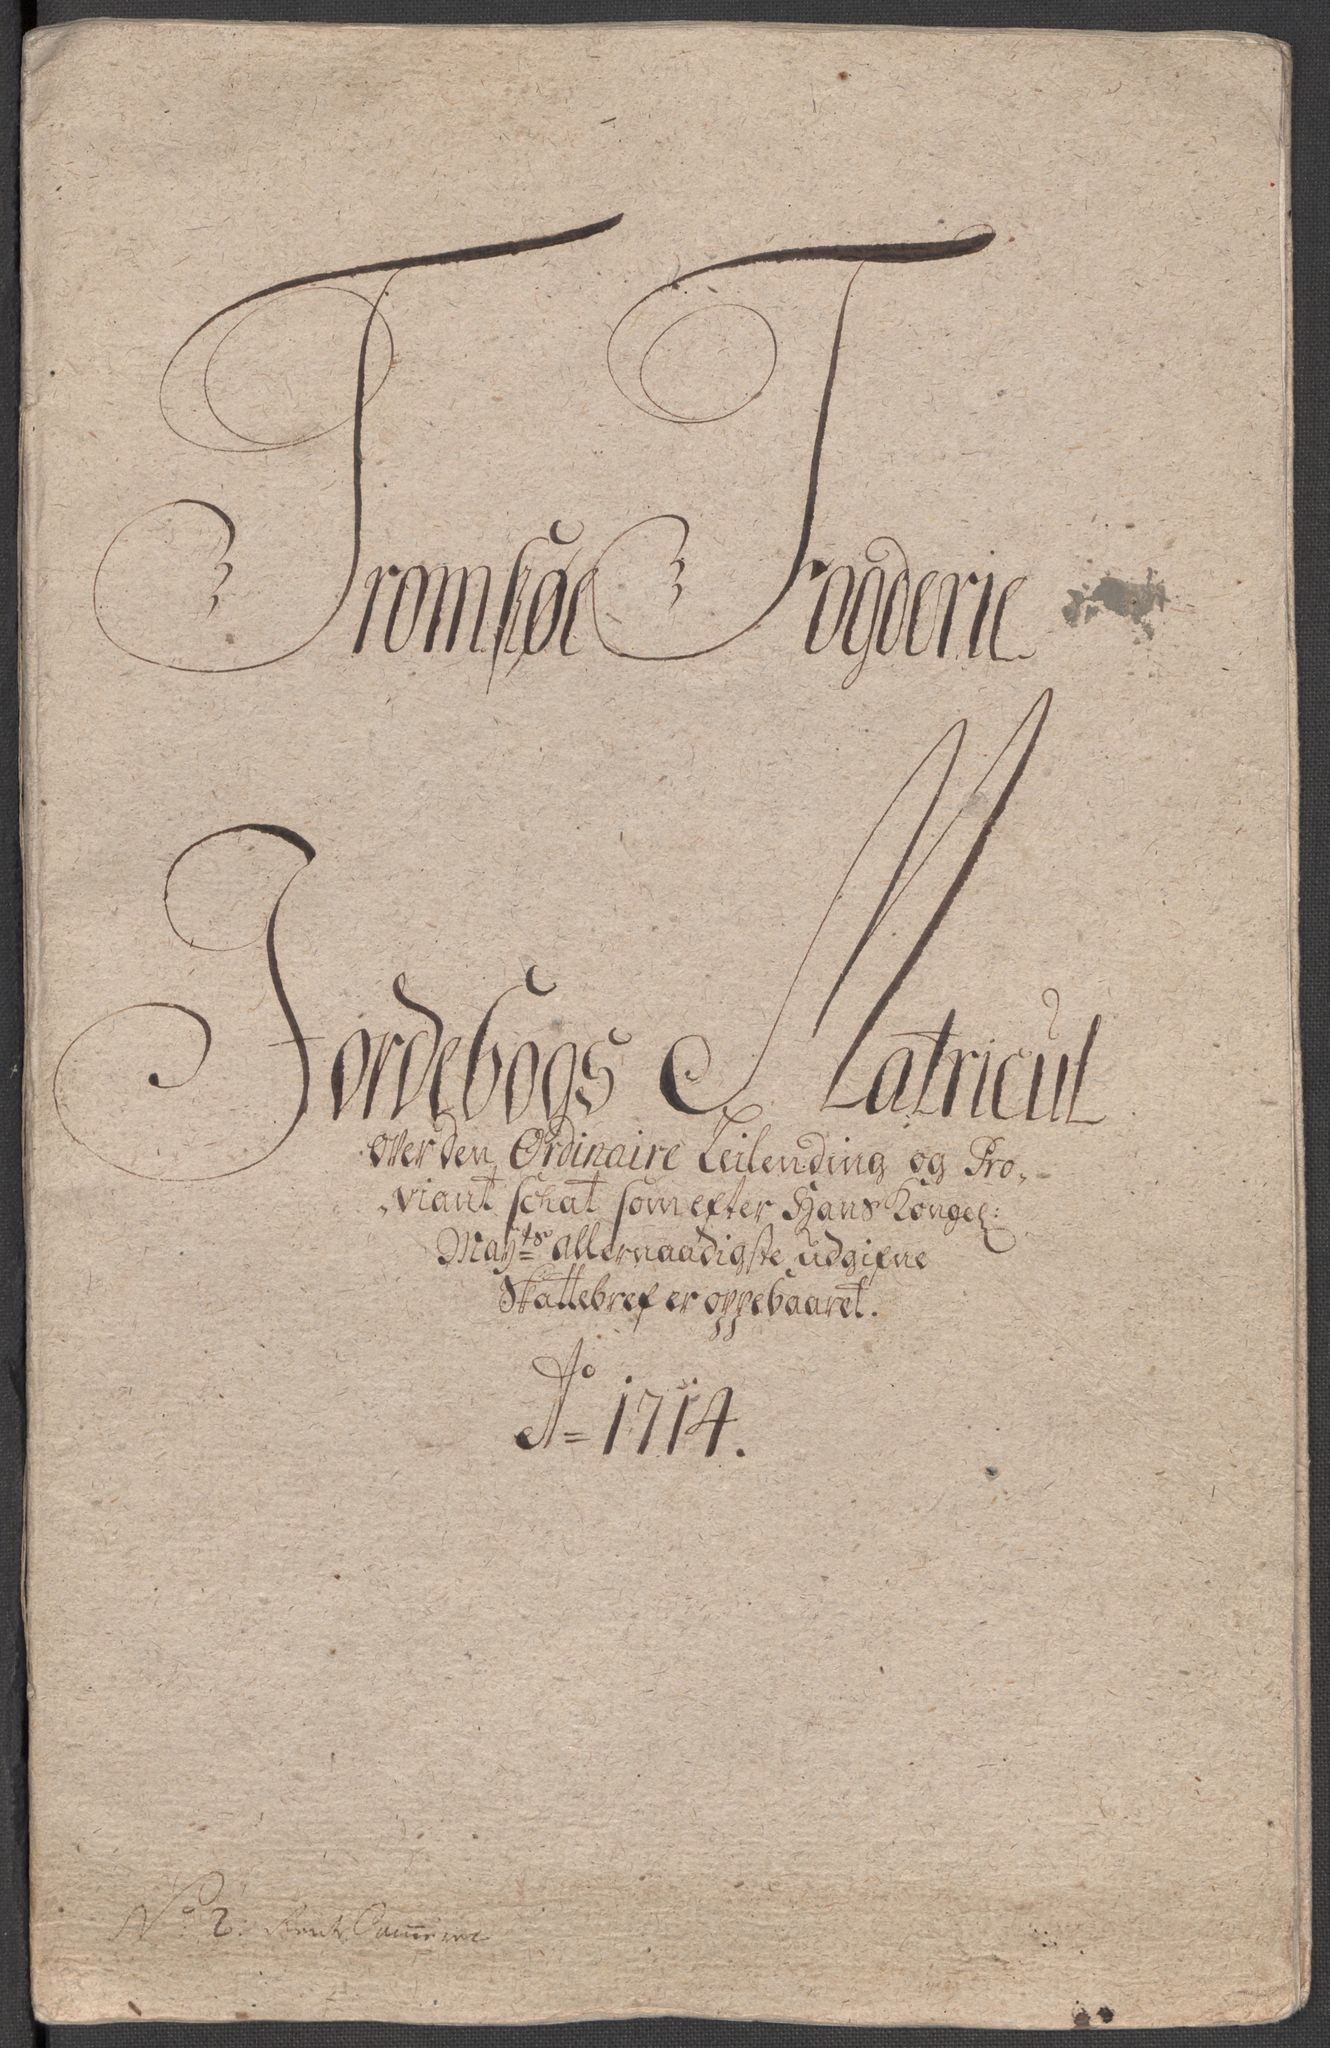 Tromsøe Fogderie
Jordebogs Matricul
over den Ordinaire Leilending og Pro-
viant schat som efter Hans Kongel:
Mayts allernaadigste udgifne
Skattebref er oppebaaret.
Ao 1714.
No 2: Rente Cammeret